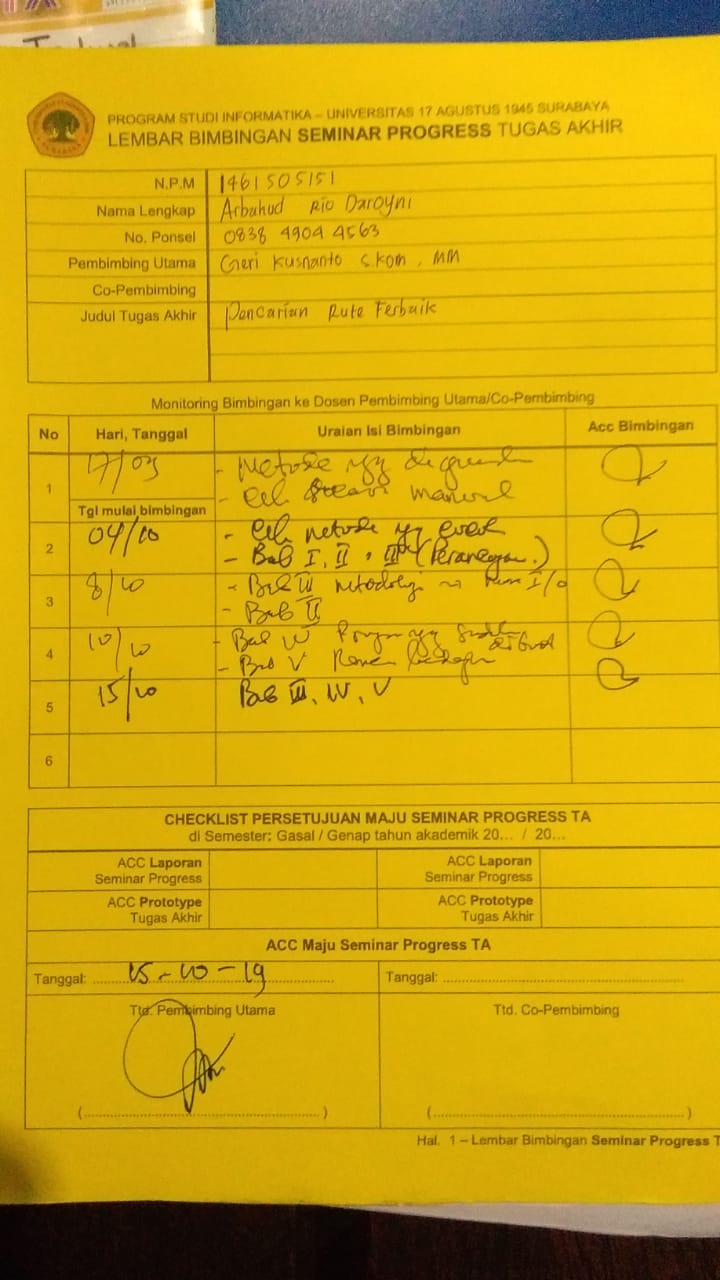 PROGRAM STUDI INFORMATIKA – UNIVERSITAS 17 AGUSTUS 1945 SURABAYA
LEMBAR BIMBINGAN SEMINAR PROGRESS TUGAS AKHIR
N.P.M 1461505151
Nama Lengkap Arbahud Rio Daroyni
No. Ponsel 0838 4904 4563
Pembimbing Utama Geri Kusnanto S.Kom, MM
Co-Pembimbing
Judul Tugas Akhir Pencarian Rute Terbaik
Monitoring Bimbingan ke Dosen Pembimbing Utama/Co-Pembimbing
No Hari, Tanggal Uraian Isi Bimbingan Acc Bimbingan
1 17/09 - Metode yg
- manual
Tgl mulai bimbingan
2 04/10 - metode yg
- Bab I, II, III
3 8/10 - Bab III metodologi I/O
- Bab II
4 10/10 - Bab IV yg
- Bab V
5 15/10 Bab III, IV, V
6
CHECKLIST PERSETUJUAN MAJU SEMINAR PROGRESS TA
di Semester: Gasal / Genap tahun akademik 20... / 20...
ACC Laporan ACC Laporan
Seminar Progress Seminar Progress
ACC Prototype ACC Prototype
Tugas Akhir Tugas Akhir
ACC Maju Seminar Progress TA
Tanggal: 15-10-19 Tanggal:
Ttd. Pembimbing Utama Ttd. Co-Pembimbing
Hal. 1 – Lembar Bimbingan Seminar Progress T